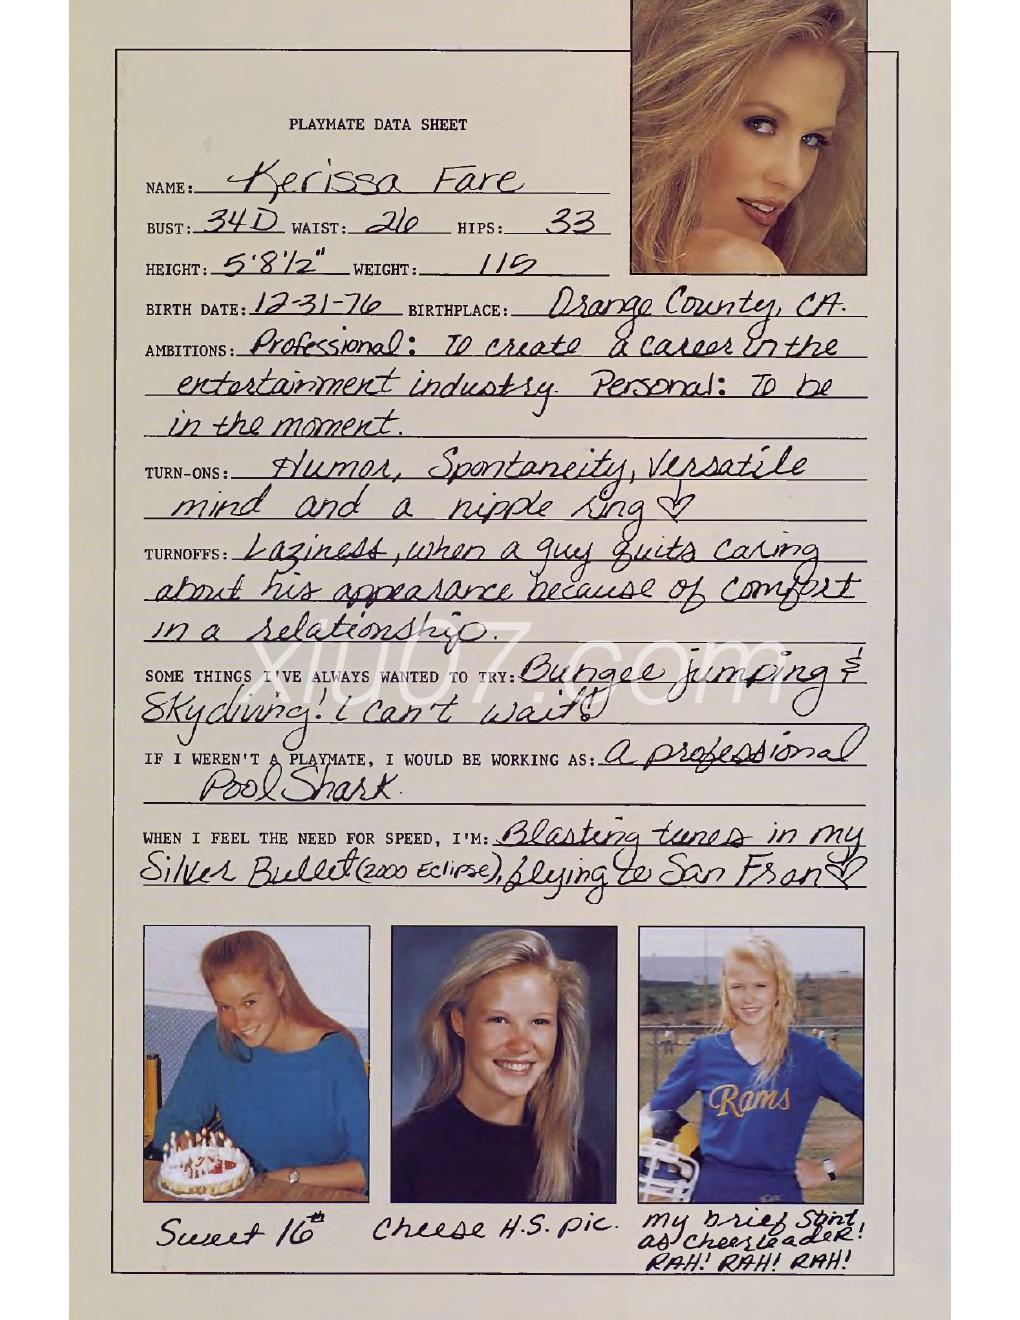 PLAYMATE DATA SHEET
NAME: Kerissa Fare
BUST: 34D WAIST: 26 HIPS: 33
HEIGHT: 5'8½" WEIGHT: 115
BIRTH DATE: 12-31-76 BIRTHPLACE: Orange County, CA.
AMBITIONS: Professional: To create a career in the
entertainment industry. Personal: To be
in the moment.
TURN-ONS: Humor, Spontaneity, Versatile
mind and a nipple ring ♡
TURNOFFS: Laziness, when a guy quits caring
about his appearance because of comfort
in a relationship.
xiu07.com
SOME THINGS I'VE ALWAYS WANTED TO TRY: Bungee jumping &
Skydiving! I can't wait!
IF I WEREN'T A PLAYMATE, I WOULD BE WORKING AS: a professional
Pool Shark.
WHEN I FEEL THE NEED FOR SPEED, I'M: Blasting tunes in my
Silver Bullet (2000 Eclipse), flying to San Fran ♡
Rams
Sweet 16
Cheese H.S. pic.
my brief stint
as cheerleader!
RAH! RAH! RAH!